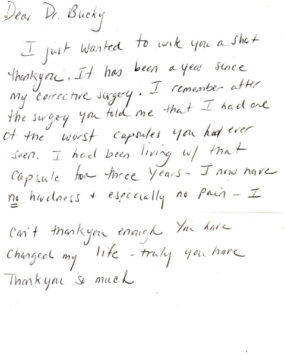 Dear Dr. Bucky
I just wanted to write you a short
thankyou. It has been a year since
my corrective surgery. I remember after
the surgery you told me that I had one
of the worst capsules you had ever
seen. I had been living w/ that
capsule for three years - I now have
no hardness + especially no pain - I
can't thankyou enough You have
changed my life - truly you have
Thankyou so much